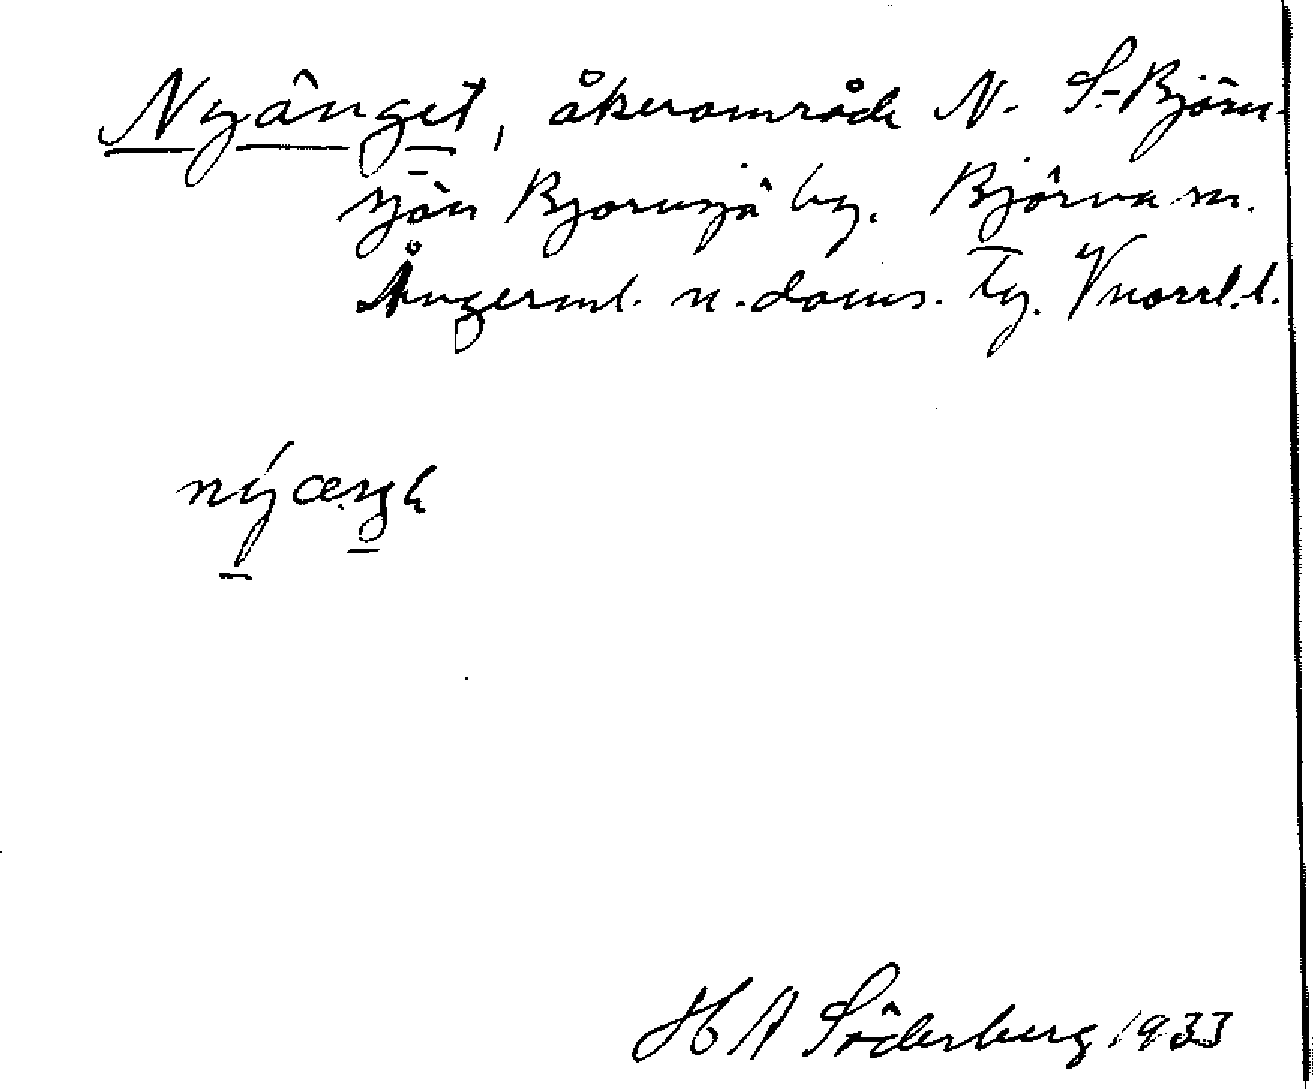 Nyänget, åkerområde N. S.-Björn-
sjön Björnsjö by. Björna sn.
Ångerml. n. doms. Tg. Vnorrl. l.
nýæŋɡ
H A Söderberg 1933